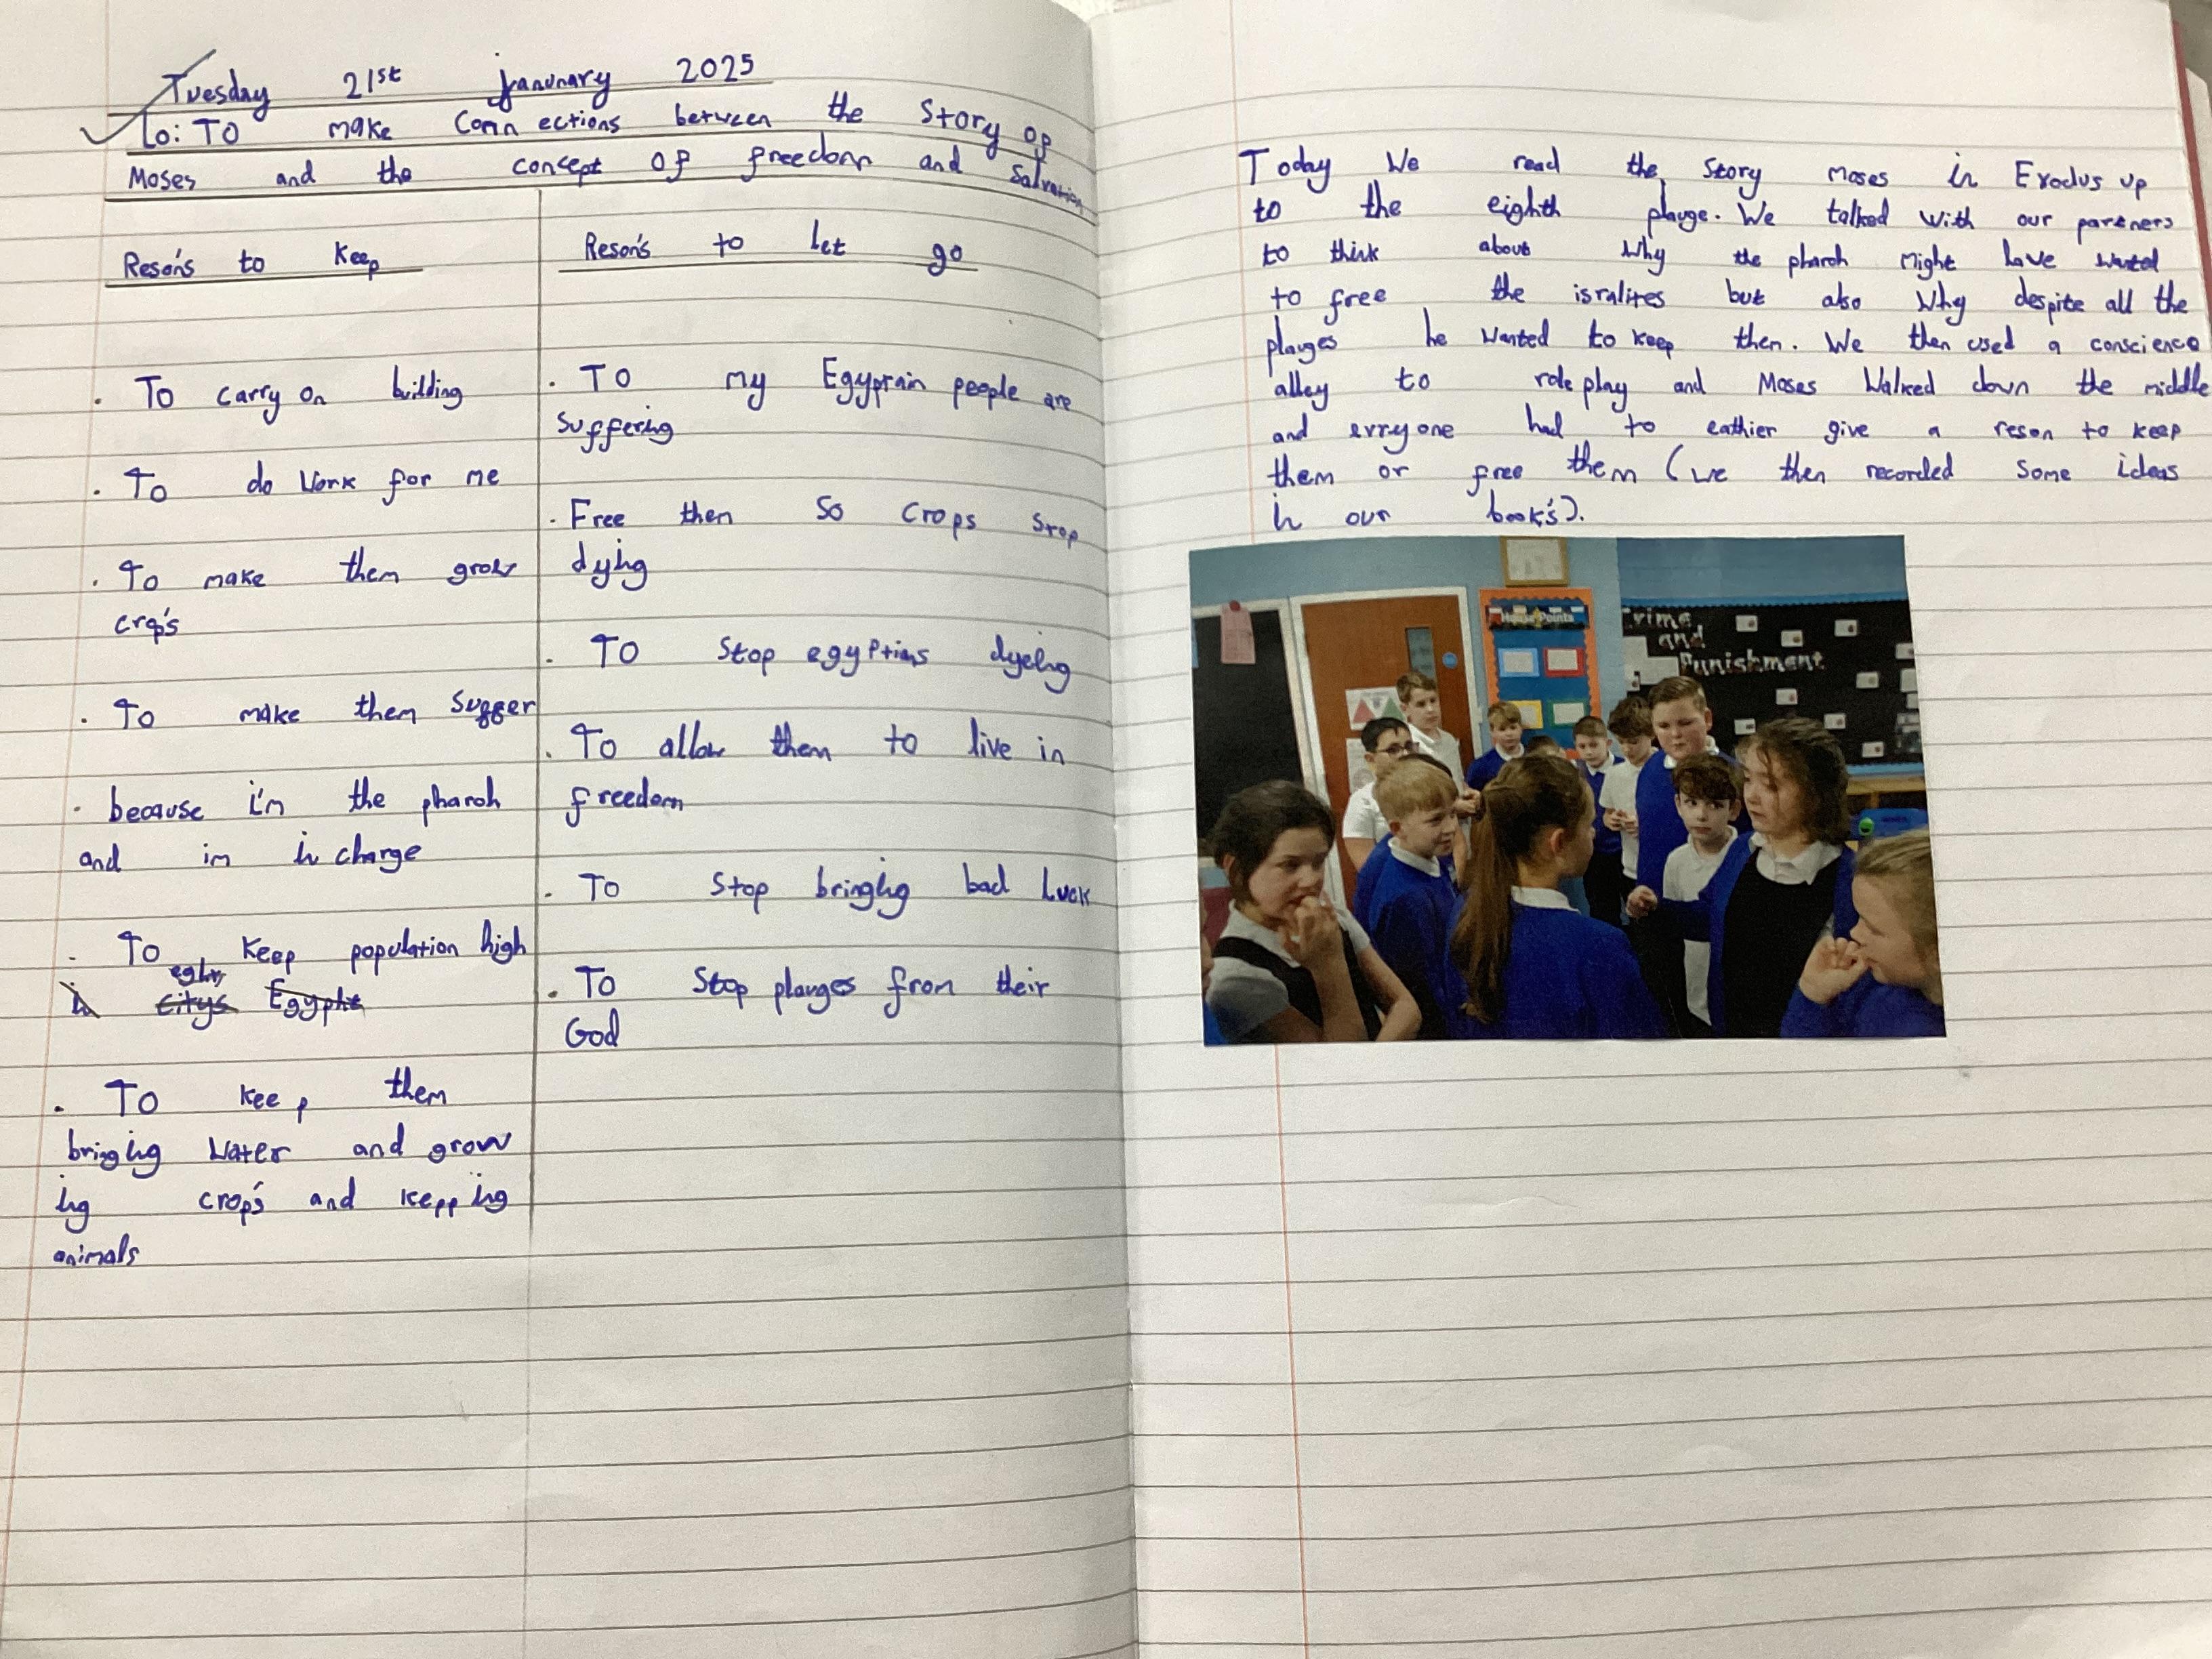 Tuesday 21st janunary 2025
Lo: To make Conn ections between the Story of
Moses and the concept of freedom and Salvation
Reson's to keep
· To carry on building
· To do work for me
· To make them grow
crop's
· To make them suffer
· because i'm the pharoh
and im in charge
· To keep population high
in citys Egypte
· To keep them
bringing water and grow
ing crop's and kepping
animals
Reson's to let go
· To my Egyptain people are
suffering
· Free them so crops stop
dying
· To stop egyptians dyeing
· To allow them to live in
freedom
· To stop bringing bad luck
· To stop plauges from their
God
Today we read the story moses in Exodus up
to the eighth plauge. We talked with our partners
to think about why the pharoh might have wanted
to free the isralites but also why despite all the
plauges he wanted to keep them. We then used a conscience
alley to role play and Moses walked down the middle
and evryone had to eathier give a reson to keep
them or free them (we then recorded some ideas
in our book's).
House Points
Crime
and
Punishment